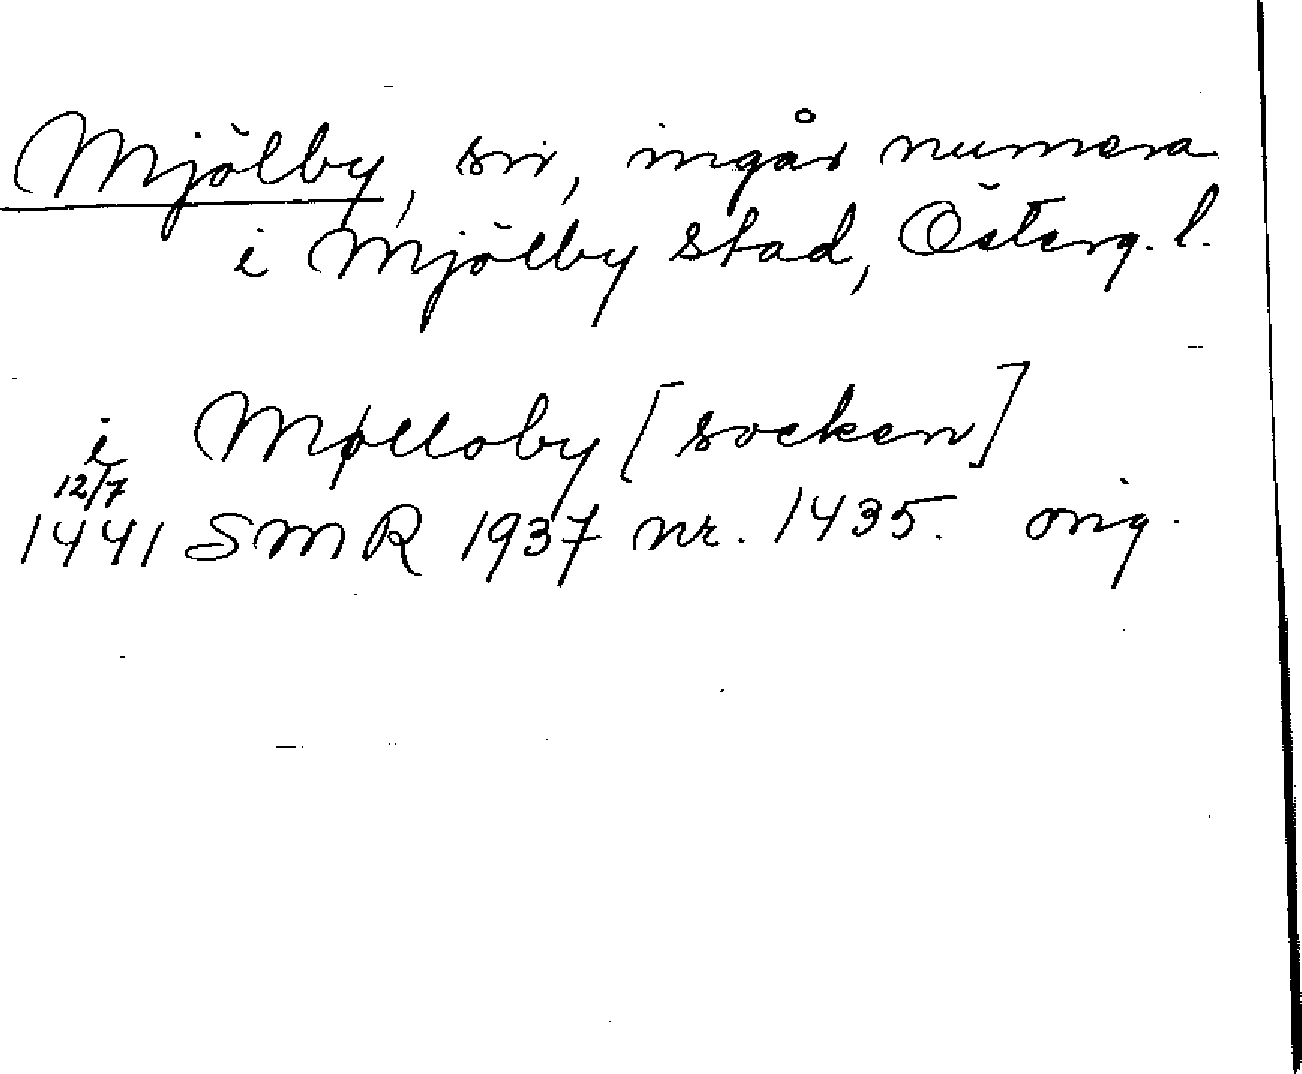 Mjölby, sn, ingår numera
i Mjölby stad, Österg. l.
i Mølloby [socken]
12/7
1441 SMR 1937 nr. 1435. orig.